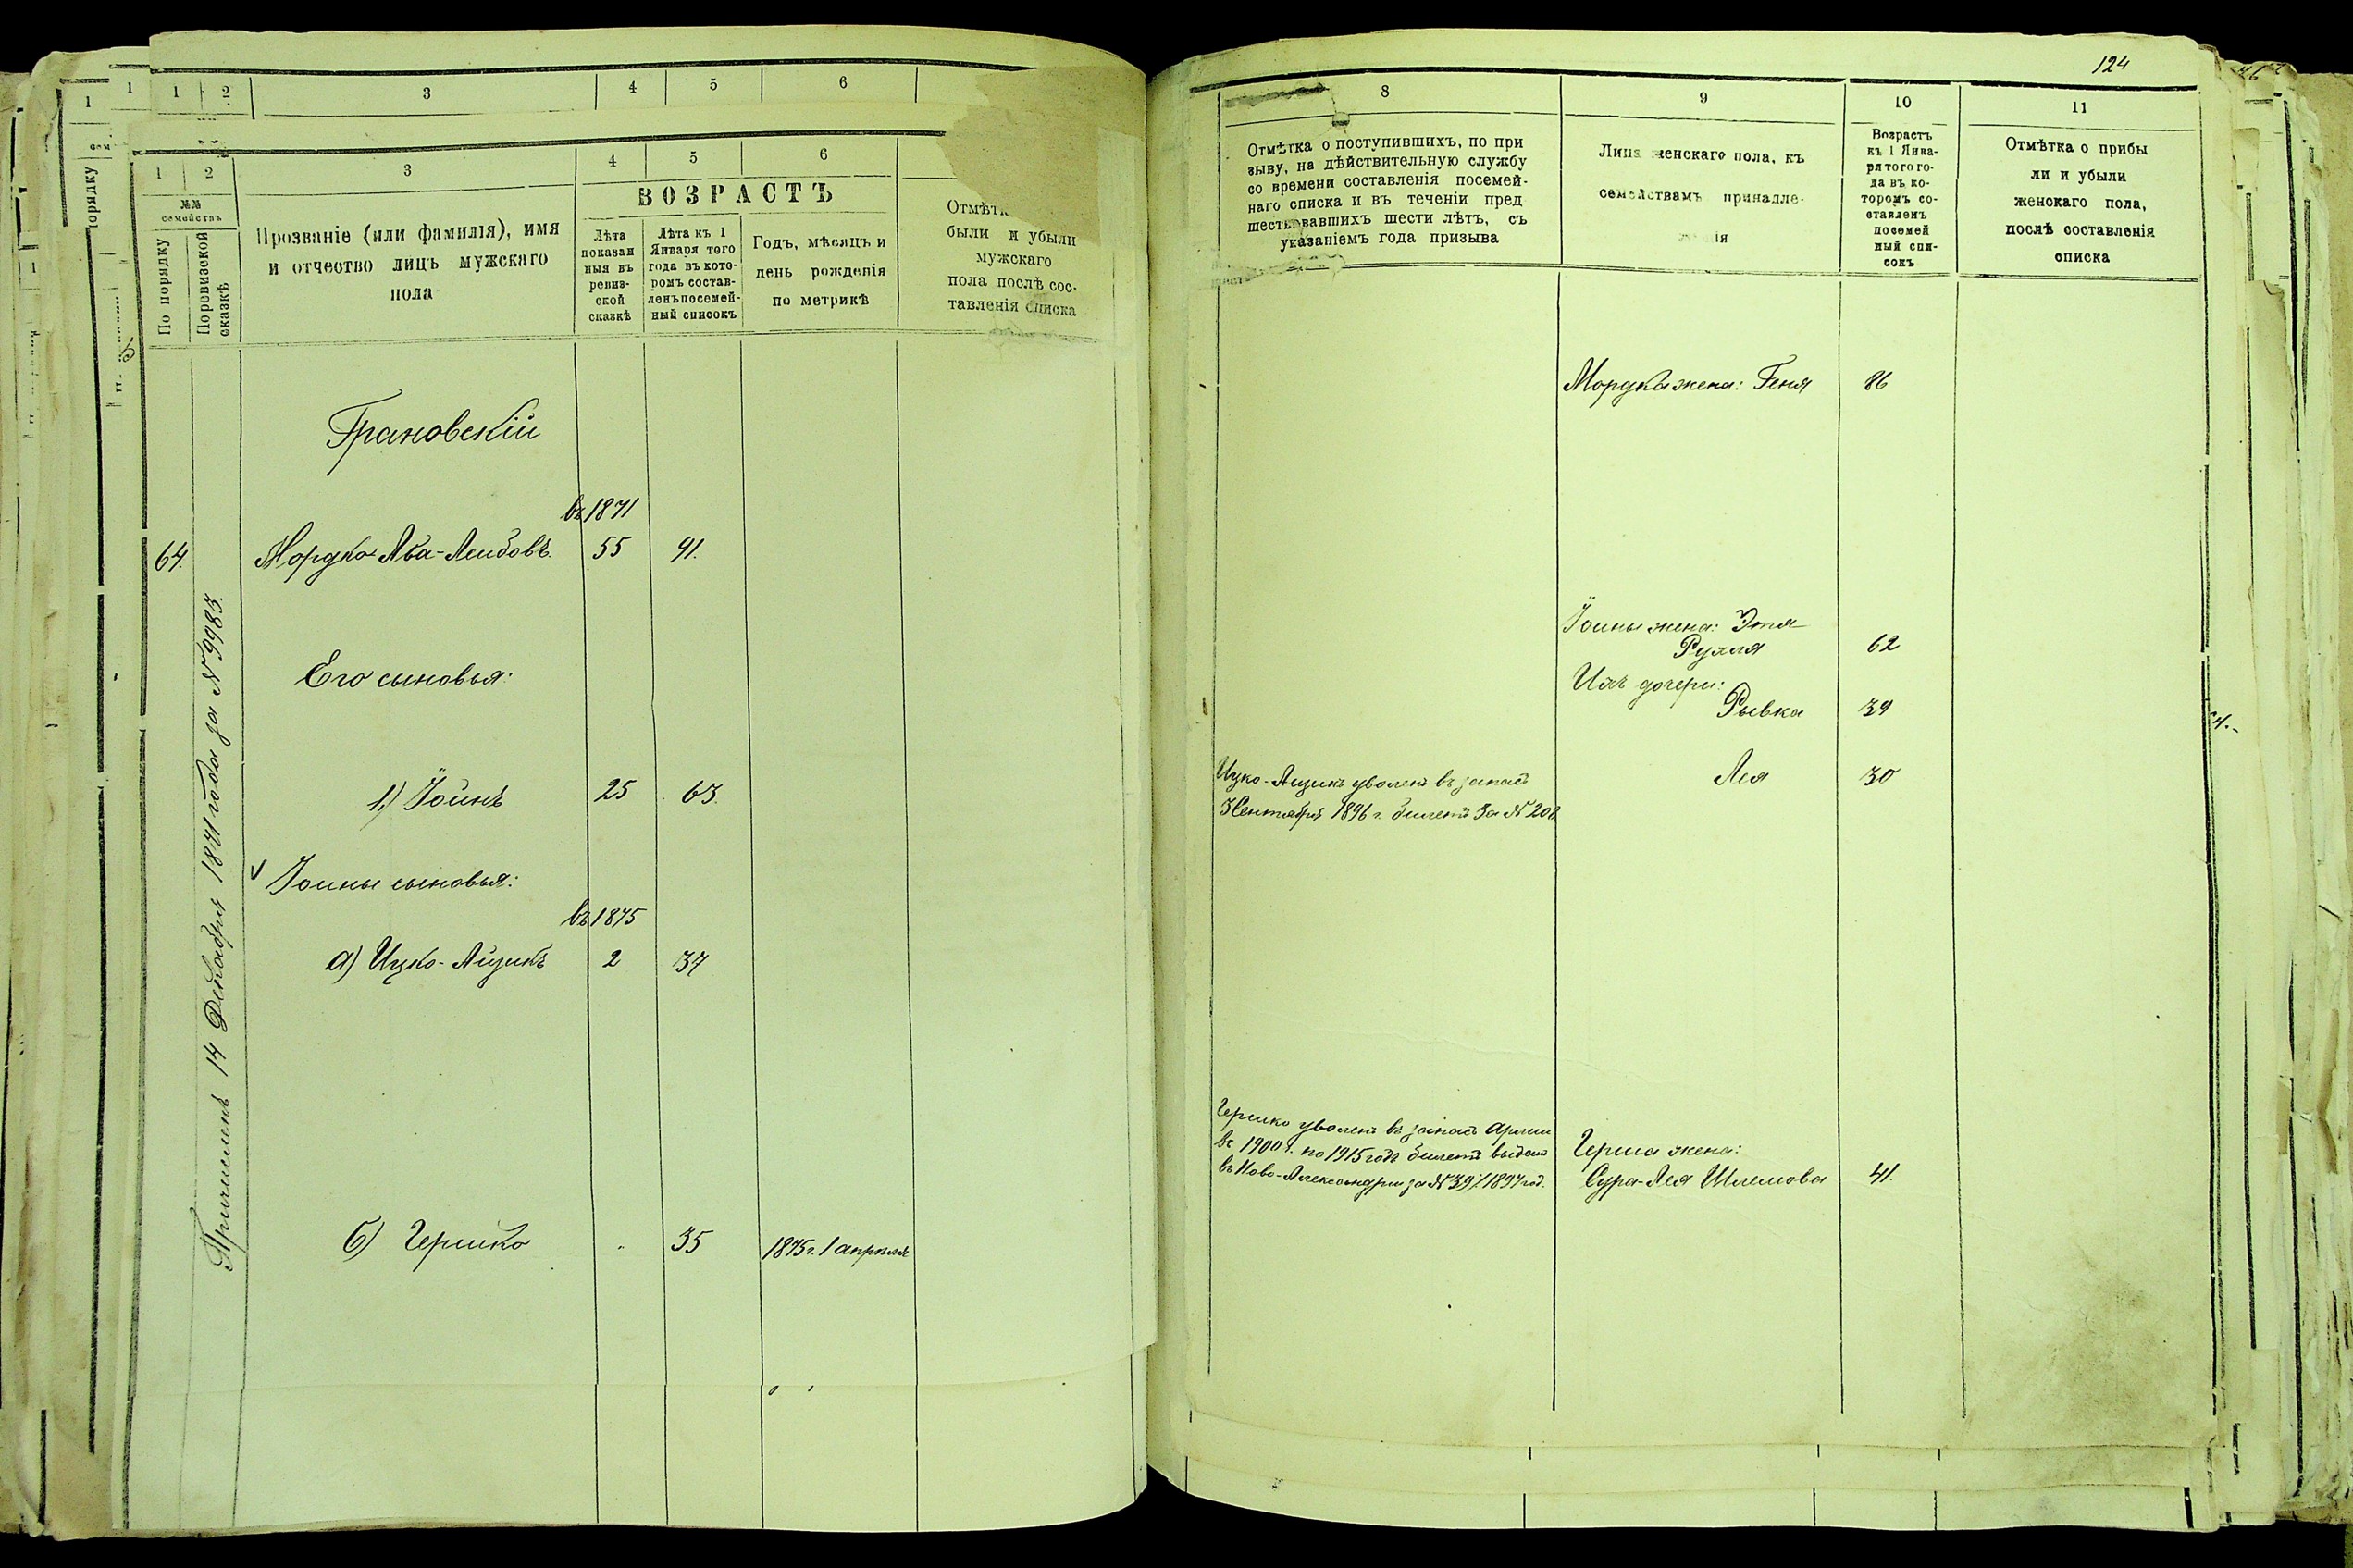 1 2 3 4 5 6
1 2 3 4 5 6
№№ семействъ
По порядку
Поревизской сказкѣ
Прозваніе (или фамилія), имя
и отчество лицъ мужскаго
пола
ВОЗРАСТЪ
Лѣта
показан
ныя въ
ревиз-
ской
сказкѣ
Лѣта къ 1
Января того
года въ кото-
ромъ состав-
ленъ посемей-
ный списокъ
Годъ, мѣсяцъ и
день рожденія
по метрикѣ
были и убыли
мужскаго
пола послѣ сос-
тавленія списка
Грановскій
въ 1871
64. Мордко Аба-Лейбовъ. 55 91.
Его сыновья:
1,) Іойнъ 25 63.
Іойны сыновья:
въ 1875
а) Ицко-Айзикъ 2 37
б) Гершко 35 1875 г. 1 апрѣля
Причисленъ 14 Декабря 1871 года за № 9985.
124
8 9 10 11
Отмѣтка о поступившихъ, по при
зыву, на дѣйствительную службу
со времени составленія посемей-
наго списка и въ теченіи пред
шествовавшихъ шести лѣтъ, съ
указаніемъ года призыва
Лица женскаго пола, къ
семействамъ принадле-
Возрастъ
къ 1 Янва-
ря того го-
да въ ко-
торомъ со-
ставленъ
посемей
ный спи-
сокъ
Отмѣтка о прибы
ли и убыли
женскаго пола,
послѣ составленія
списка
Мордка жена: Геня 86
Іойны жена: Этя
Рухля 62
Ихъ дочери:
Рывка 39
Лея 30
Ицко-Айзикъ уволенъ въ запасъ
3 Сентября 1896 г. билетъ за № 208
Гершко уволенъ въ запасъ Арміи
въ 1900 г. по 1915 годъ билетъ выданъ
въ Ново-Александріи за № 39 1897 год.
Герша жена:
Сура-Лея Шлемова 41.